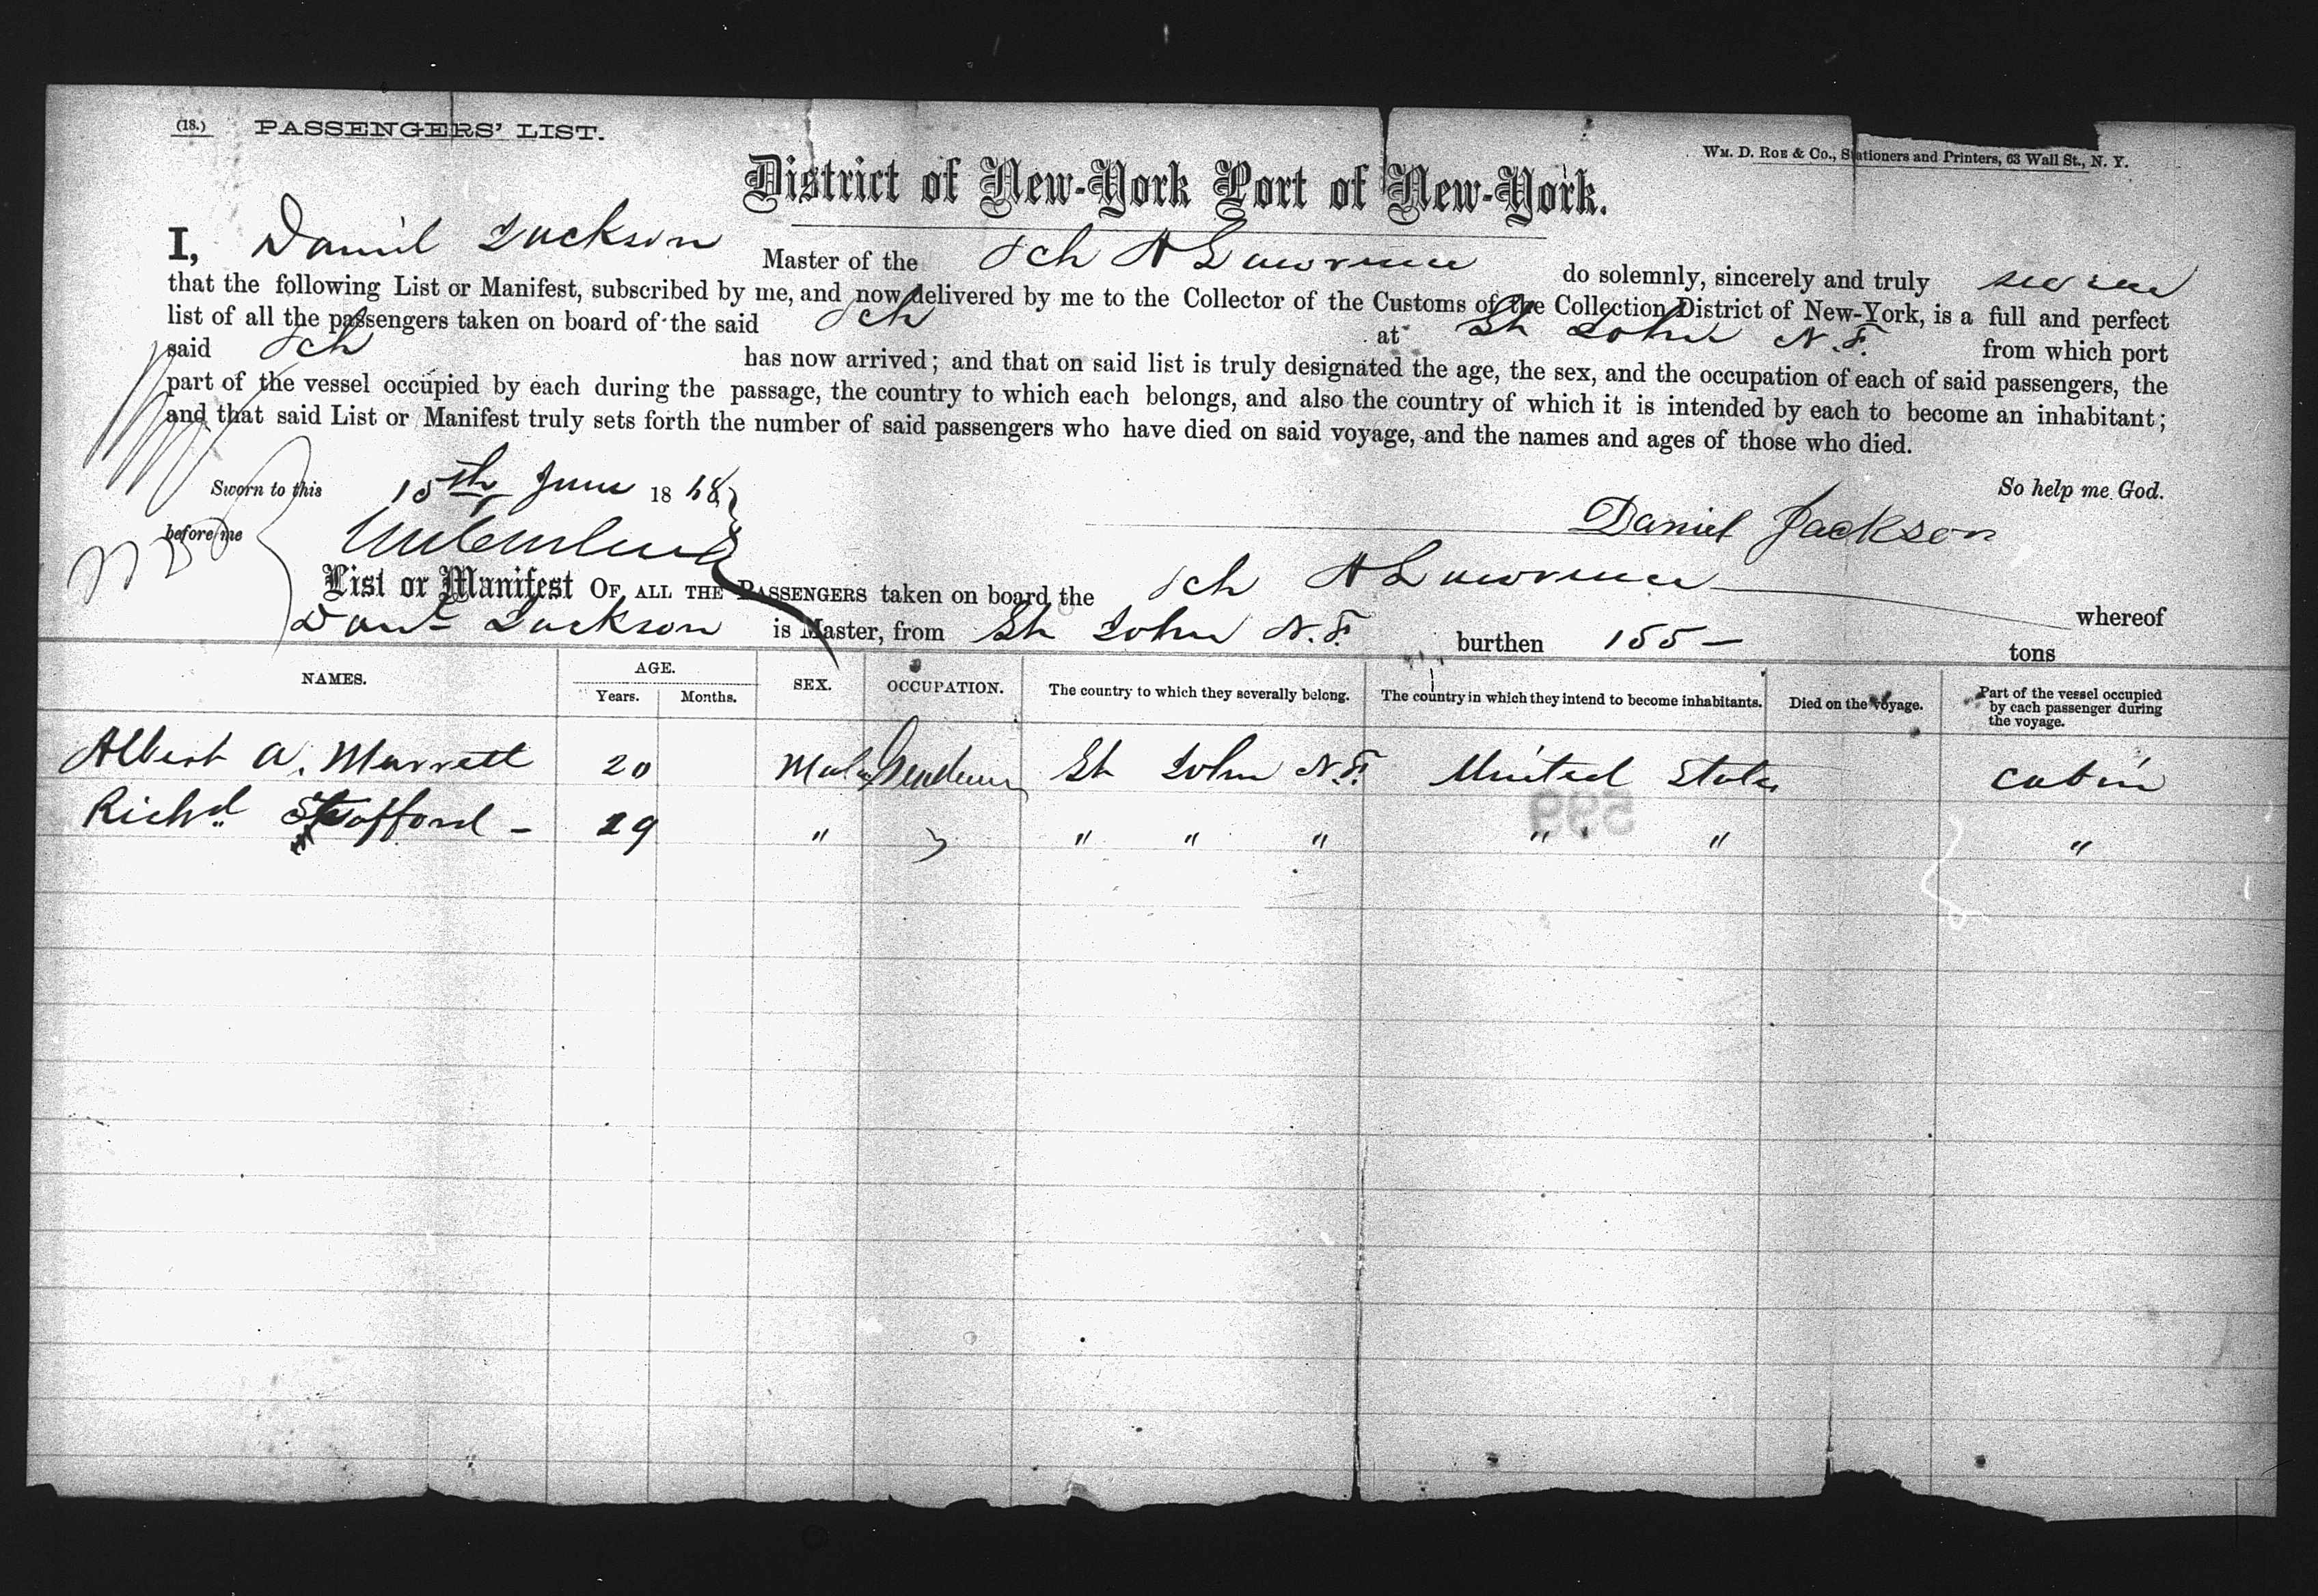 (18.) PASSENGERS' LIST.
Wm. D. Roe & Co., Stationers and Printers, 63 Wall St., N. Y.
District of New-York Port of New-York.
I, Daniel Jackson Master of the Sch A Lawrence do solemnly, sincerely and truly swear
that the following List or Manifest, subscribed by me, and now delivered by me to the Collector of the Customs of the Collection District of New-York, is a full and perfect
list of all the passengers taken on board of the said Sch at St Johns N.F. from which port
said Sch has now arrived; and that on said list is truly designated the age, the sex, and the occupation of each of said passengers, the
part of the vessel occupied by each during the passage, the country to which each belongs, and also the country of which it is intended by each to become an inhabitant;
and that said List or Manifest truly sets forth the number of said passengers who have died on said voyage, and the names and ages of those who died.
Sworn to this 15th June 1868 So help me God.
before me Daniel Jackson
List or Manifest OF ALL THE PASSENGERS taken on board the Sch A Lawrence whereof
Danl Jackson is Master, from St Johns N.F. burthen 155 — tons
NAMES. AGE. Years. Months. SEX. OCCUPATION. The country to which they severally belong. The country in which they intend to become inhabitants. Died on the voyage. Part of the vessel occupied by each passenger during the voyage.
Albert A. Marrett 20 Male St Johns N.F. United States cabin
Richd Stafford - 29 " " " " " " "
599